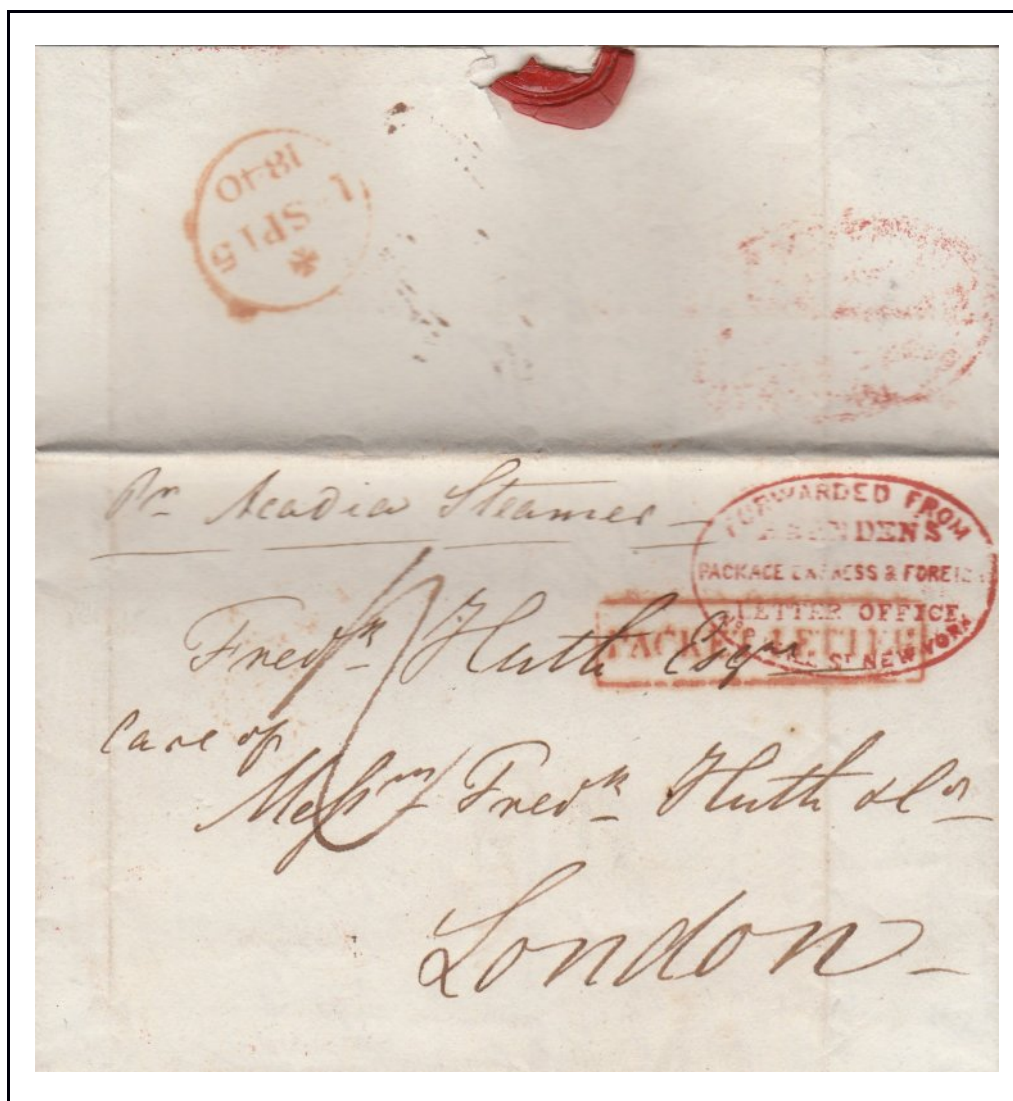 1840
1
SP15
Pr Acadia Steamer
FORWARDED FROM
PACKAGE EXPRESS & FOREIGN
LETTER OFFICE
ST NEW YORK
PACKET LETTER
Fredk Huth Esqre
Care of
Messrs Fredk Huth & Co
London